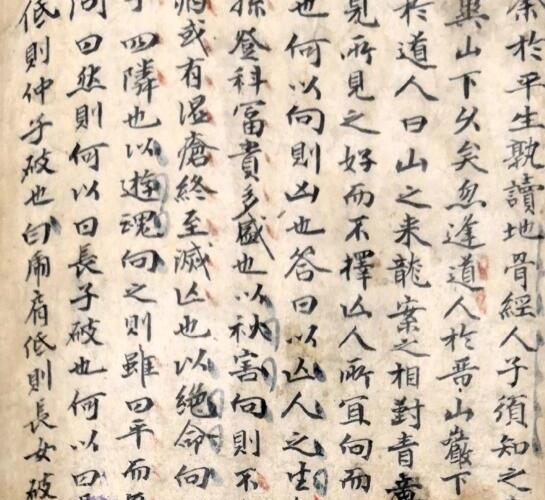 於平生孰讀地骨經人子須知之
山下久矣忽逢道人於普山巖下
於道人曰山之来龍案之相對青
見所見之好而不擇凶人所宜向而
也何以向則凶也答曰以凶人之生
孫登科冨貴多盛也以秋害向則不
病或有湿瘡終至滅亡也以絶命向
四隣也以遊魂向之則雖曰平而
問曰然則何以曰長子破也何以曰
低則仲子破也白角低則長女破